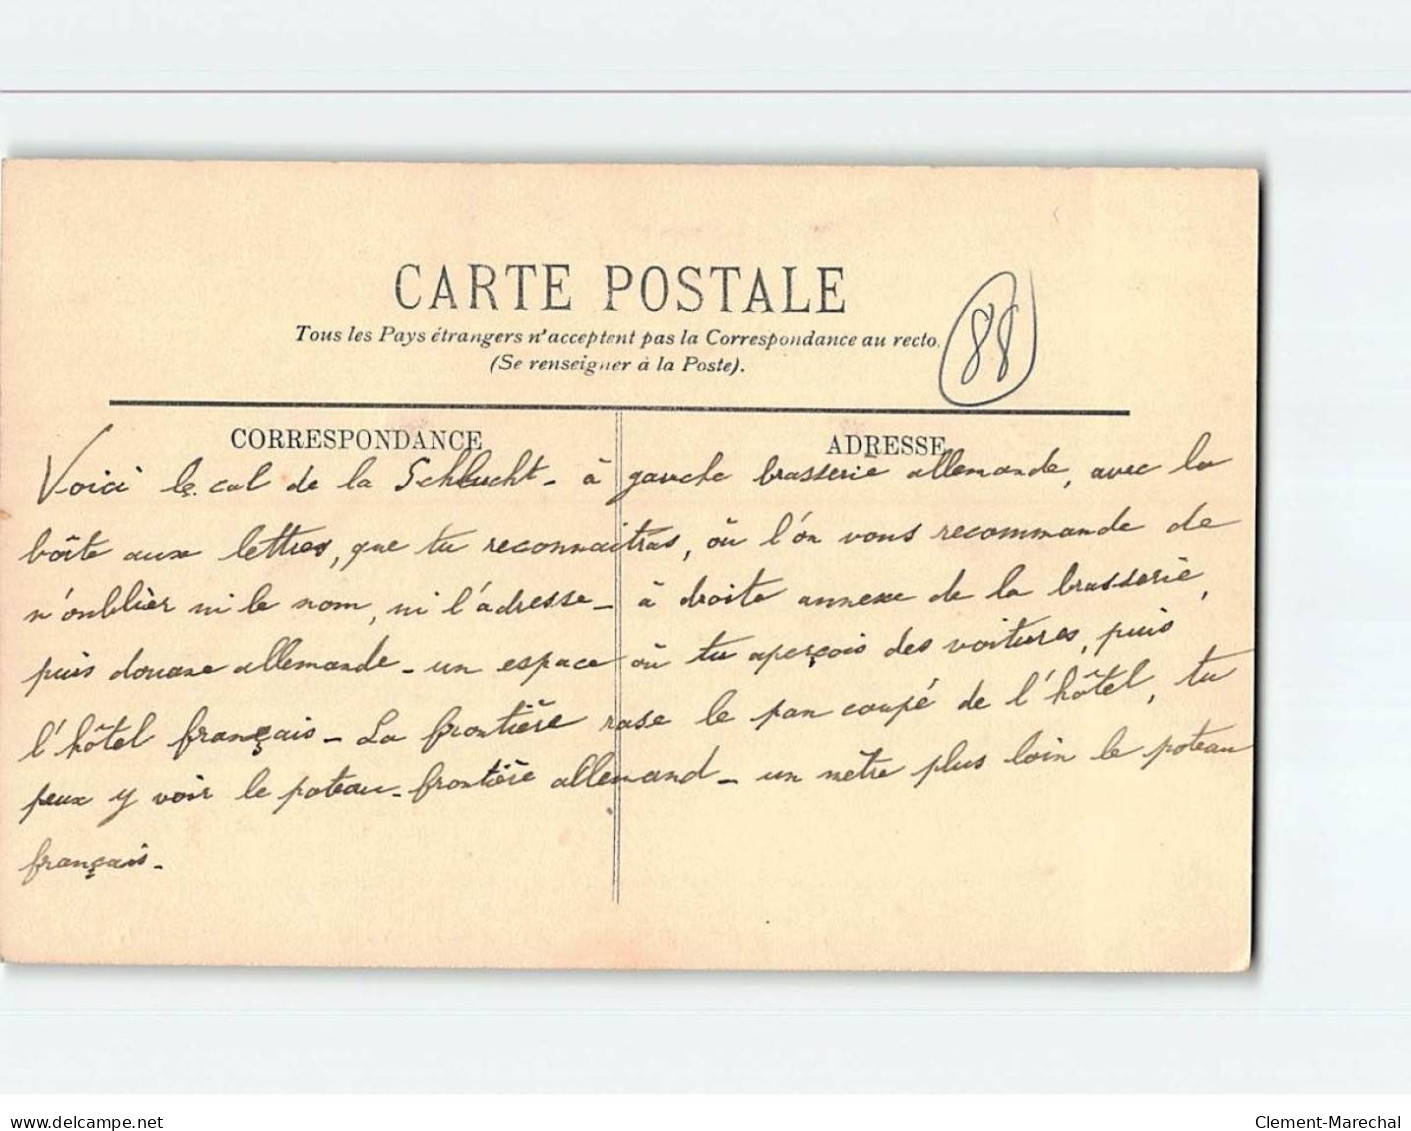 CARTE POSTALE
Tous les Pays étrangers n'acceptent pas la Correspondance au recto.
(Se renseigner à la Poste).
88
CORRESPONDANCE
ADRESSE
Voici le col de la Schlucht - à gauche brasserie allemande, avec la
boîte aux lettres, que tu reconnaitras, où l'on vous recommande de
n'oublier ni le nom, ni l'adresse - à droite annexe de la brasserie,
puis douane allemande - un espace où tu aperçois des voitures, puis
l'hôtel français - La frontière rase le pan coupé de l'hôtel, tu
peux y voir le poteau-frontière allemand - un mètre plus loin le poteau
français -
www.delcampe.net
Clement-Marechal